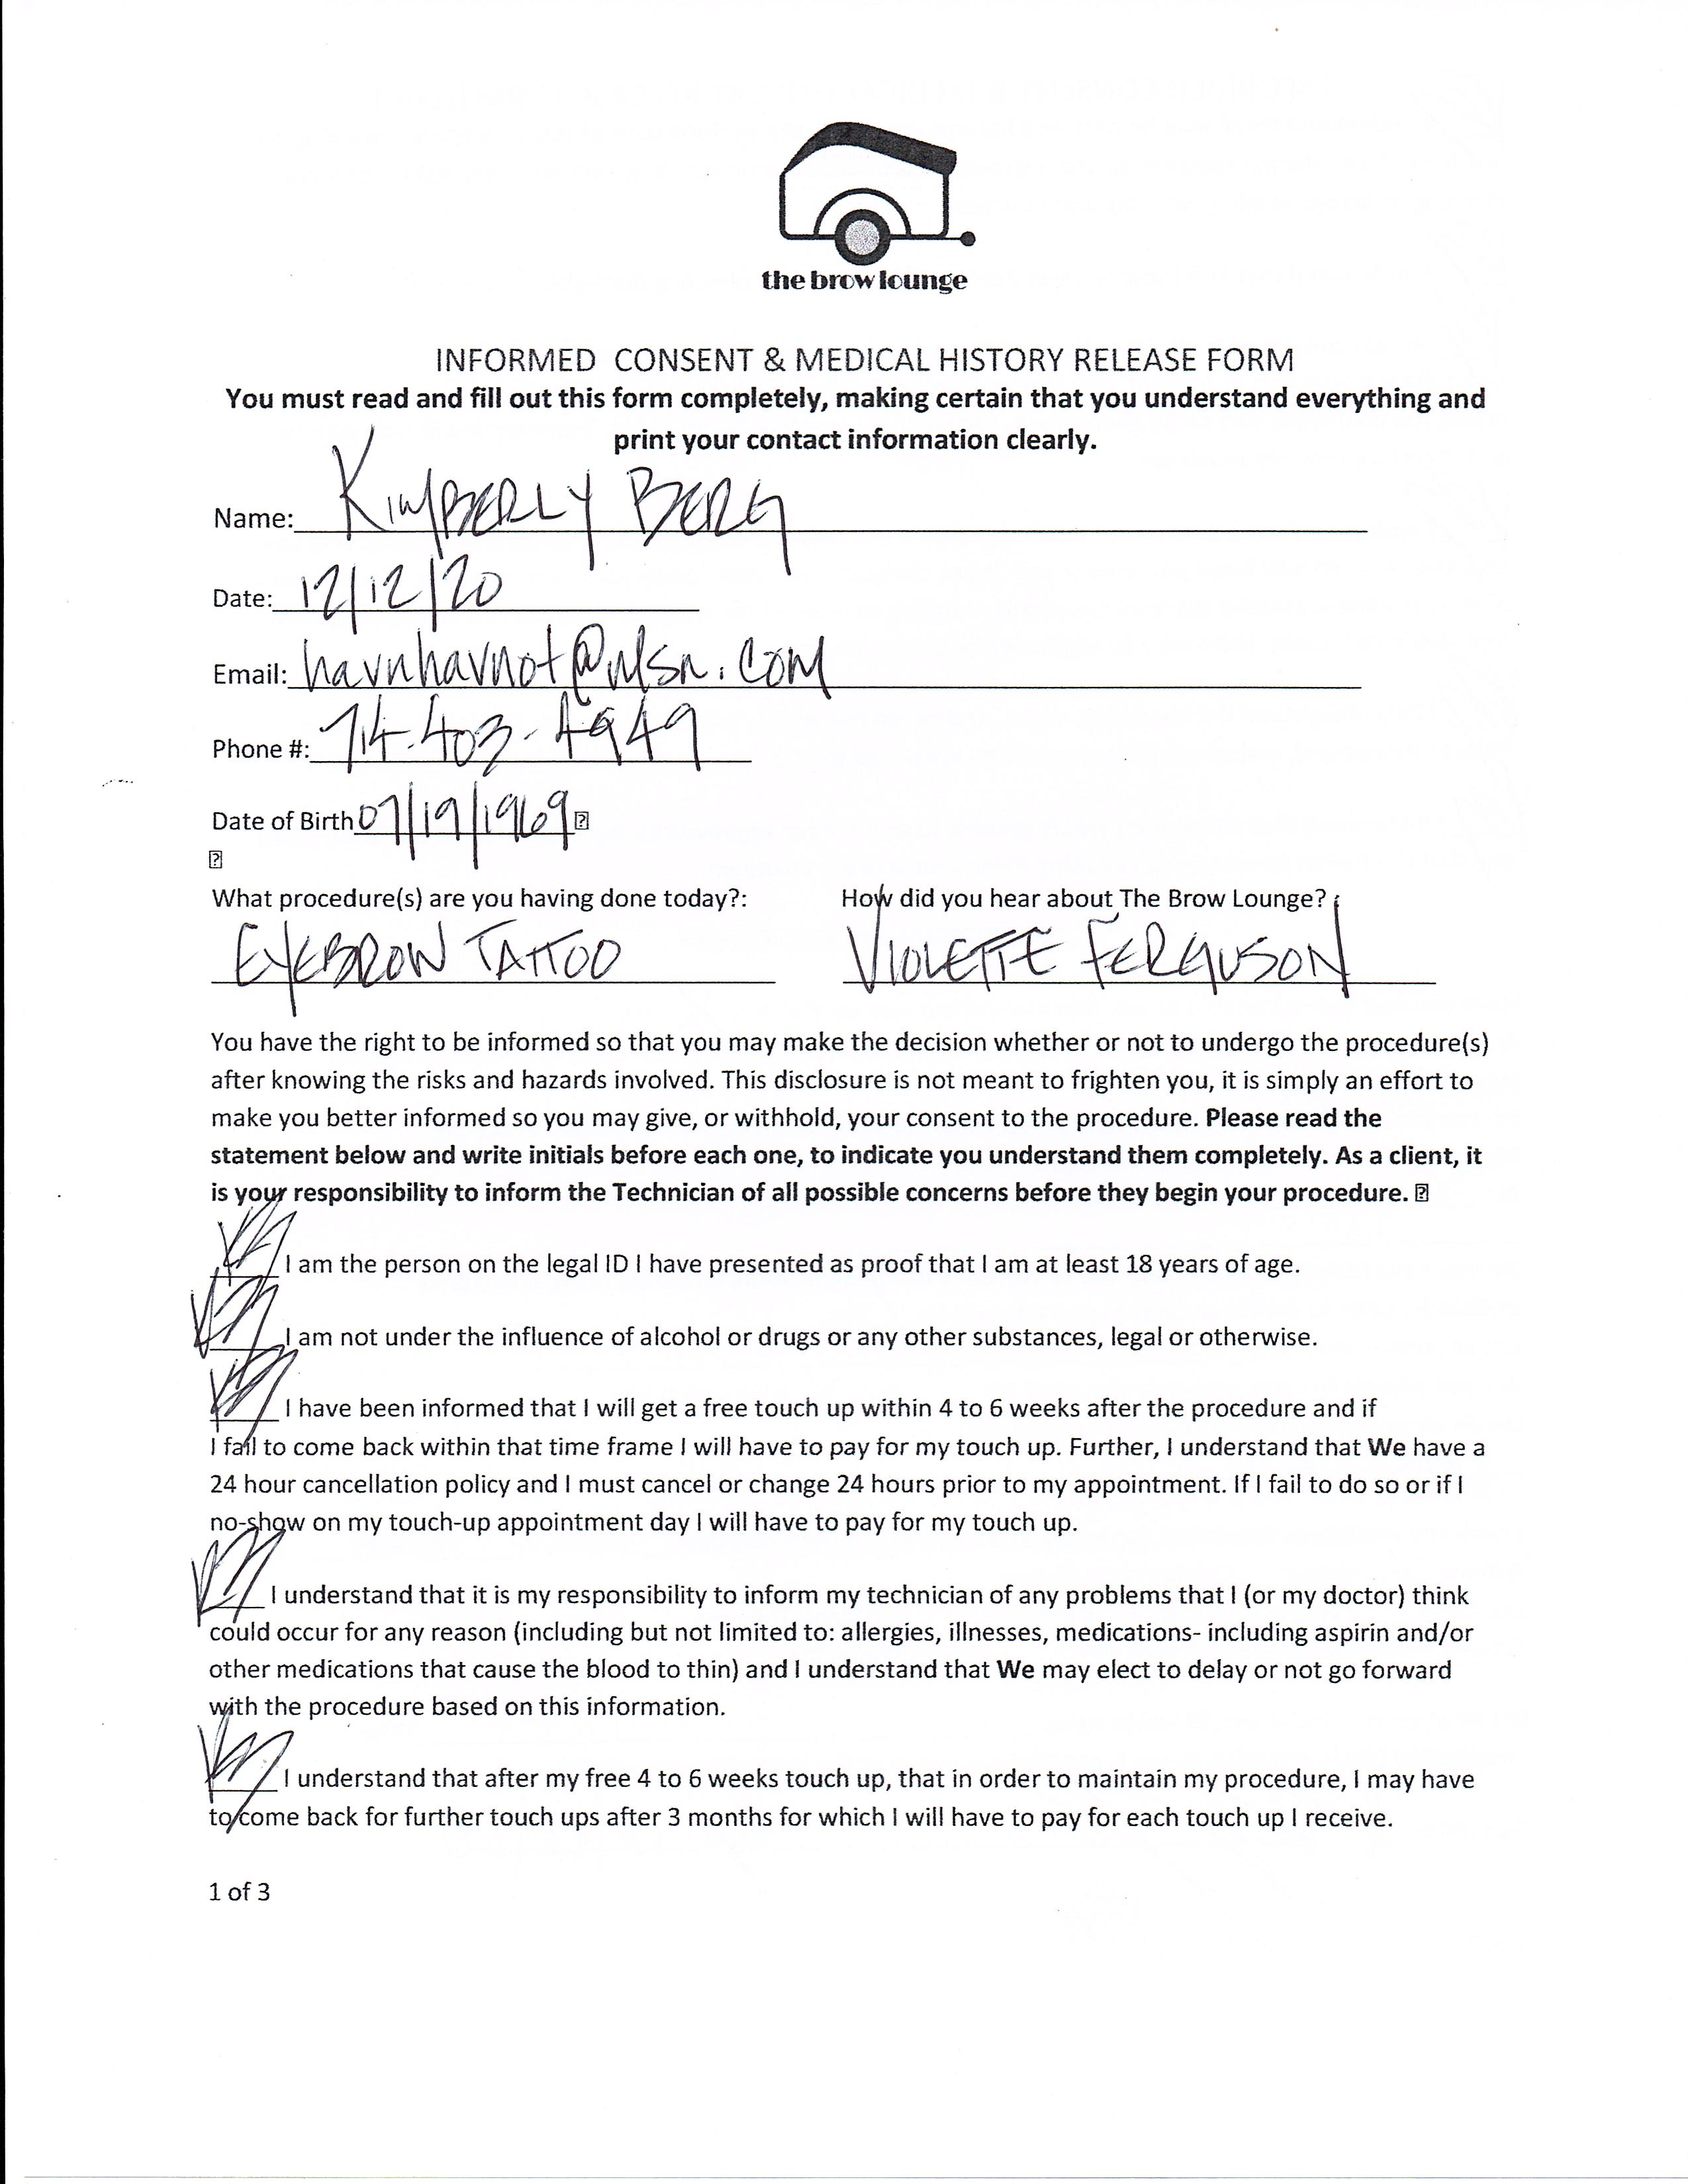 the brow lounge
INFORMED CONSENT & MEDICAL HISTORY RELEASE FORM
You must read and fill out this form completely, making certain that you understand everything and
print your contact information clearly.
Name: KIMBERLY BERG
Date: 12/12/20
Email: havnhavnot@msn.com
Phone #: 714-403-4949
Date of Birth 07/19/1969
What procedure(s) are you having done today?: How did you hear about The Brow Lounge?
EYEBROW TATTOO VIOLETTE FERGUSON
You have the right to be informed so that you may make the decision whether or not to undergo the procedure(s)
after knowing the risks and hazards involved. This disclosure is not meant to frighten you, it is simply an effort to
make you better informed so you may give, or withhold, your consent to the procedure. Please read the
statement below and write initials before each one, to indicate you understand them completely. As a client, it
is your responsibility to inform the Technician of all possible concerns before they begin your procedure.
I am the person on the legal ID I have presented as proof that I am at least 18 years of age.
I am not under the influence of alcohol or drugs or any other substances, legal or otherwise.
I have been informed that I will get a free touch up within 4 to 6 weeks after the procedure and if
I fail to come back within that time frame I will have to pay for my touch up. Further, I understand that We have a
24 hour cancellation policy and I must cancel or change 24 hours prior to my appointment. If I fail to do so or if I
no-show on my touch-up appointment day I will have to pay for my touch up.
I understand that it is my responsibility to inform my technician of any problems that I (or my doctor) think
could occur for any reason (including but not limited to: allergies, illnesses, medications- including aspirin and/or
other medications that cause the blood to thin) and I understand that We may elect to delay or not go forward
with the procedure based on this information.
I understand that after my free 4 to 6 weeks touch up, that in order to maintain my procedure, I may have
to come back for further touch ups after 3 months for which I will have to pay for each touch up I receive.
1 of 3